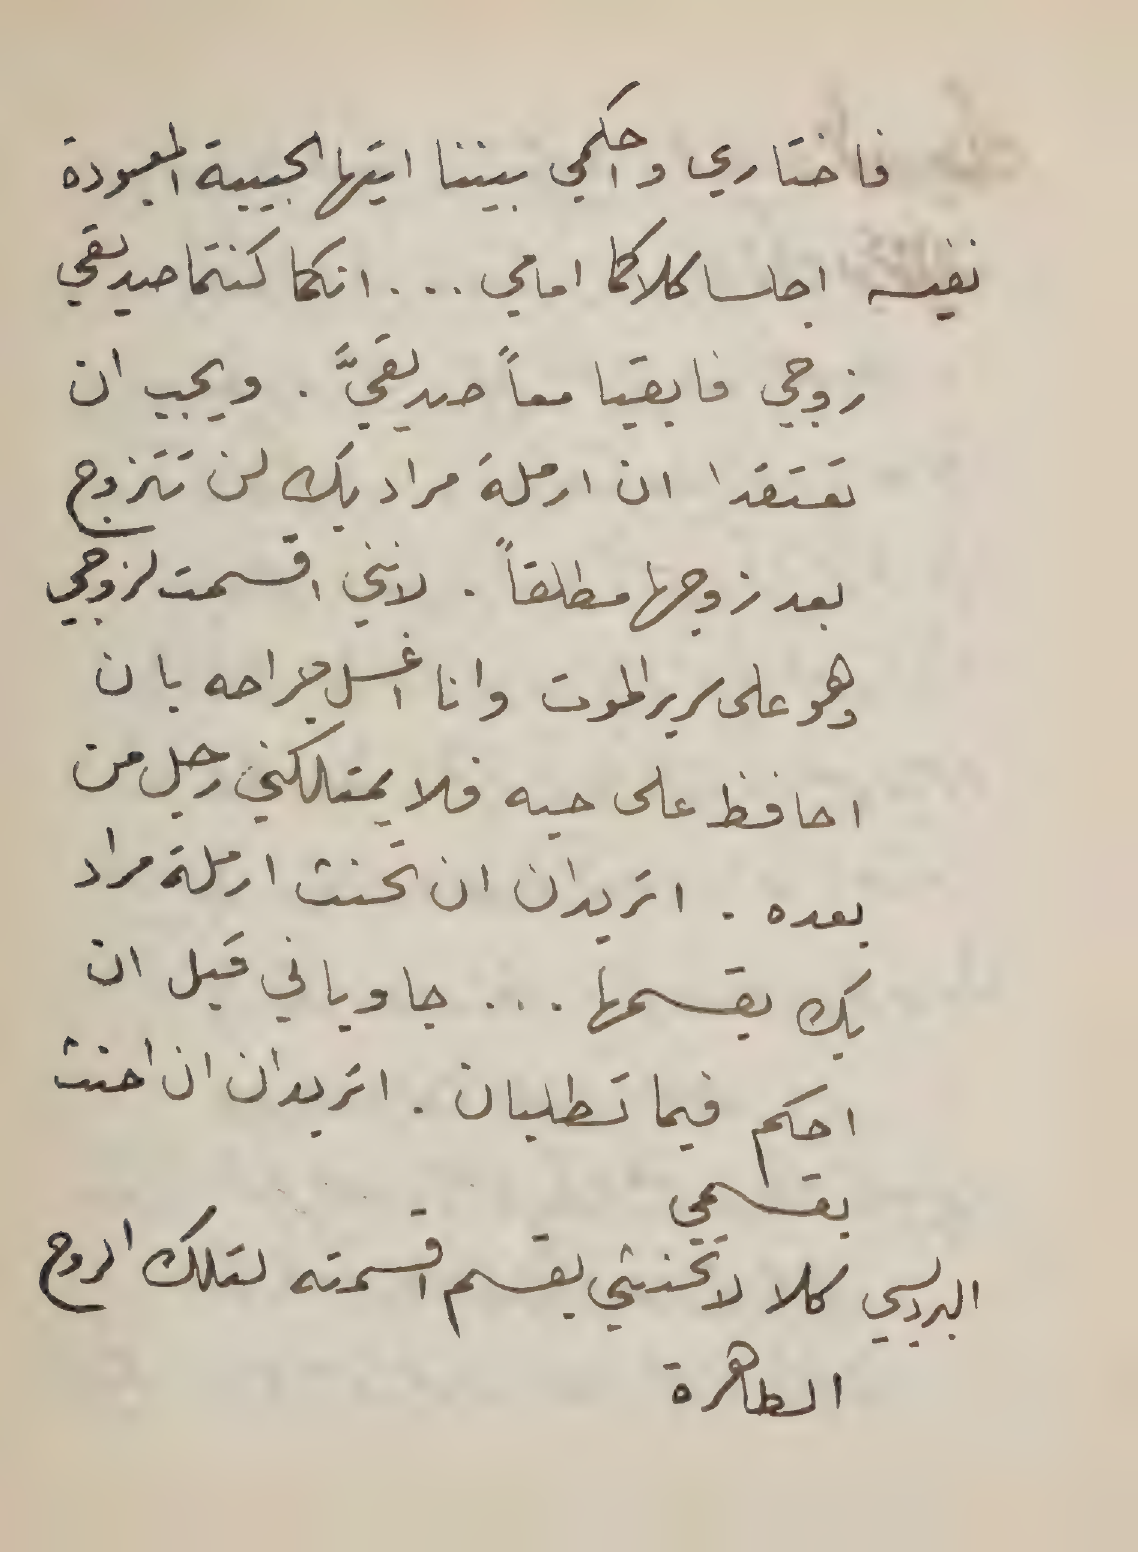 فاختاري واحكمي بيننا ايتها الحبيبة المعبودة
نفيسه اجلسا كلاكما امامي ... انكما كنتما صديقي
زوجي فابقيا معاً صديقيَّ . ويجب ان
تعتقدا ان ارملة مراد بك لن تتزوج
بعد زوجها مطلقاً . لانني اقسمت لزوجي
وهو على سرير الموت وانا اغسل جراحه بان
احافظ على حبه فلا يمتلكني رجل من
بعده . اتريدان ان تحنث ارملة مراد
بك بقسمها ... جاوباني قبل ان
احكم فيما تطلبان . اتريدان ان احنث
بقسمي
البرديسي كلا لا تحنثي بقسم اقسمته لتلك الروح
الطاهرة